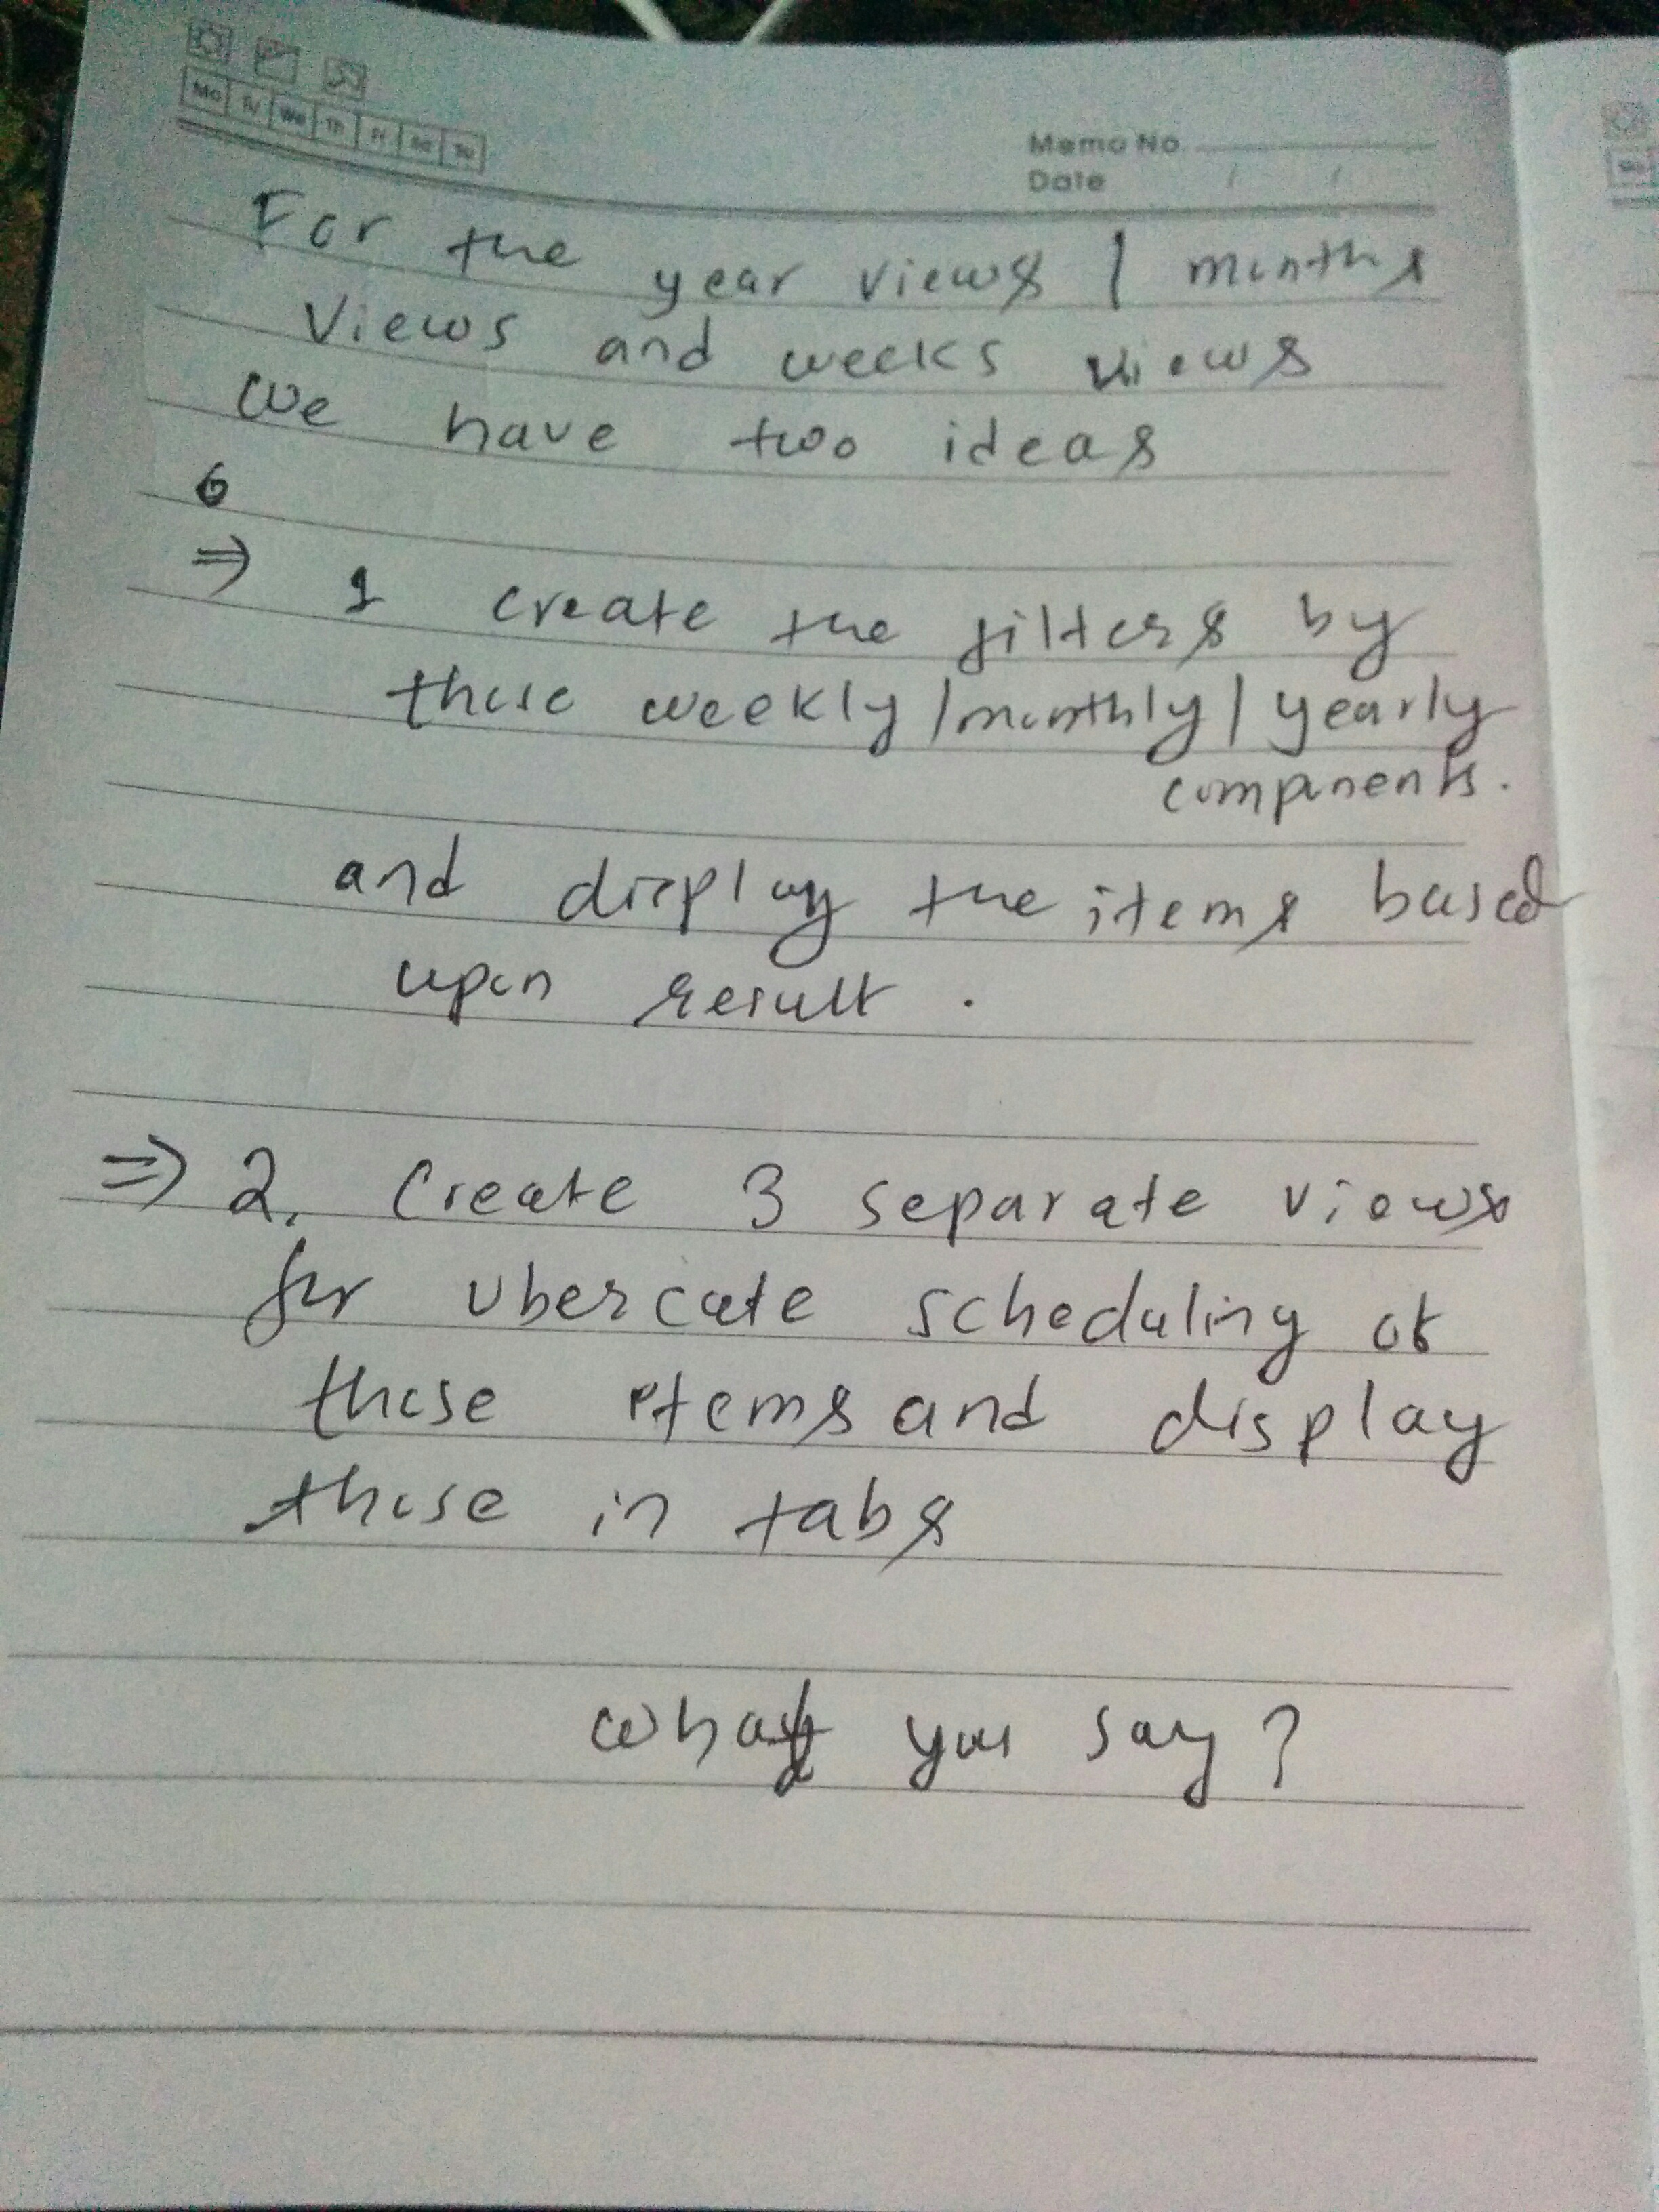 Mo Tu We Th Fr Sa Su
Memo No
Date / /
For the year views / months
views and weeks views
we have two ideas
6
⇒ 1 create the filters by
these weekly/monthly/yearly
components.
and display the items based
upon result.
⇒ 2. Create 3 separate views
for ubercate scheduling of
those items and display
those in tabs
what you say?